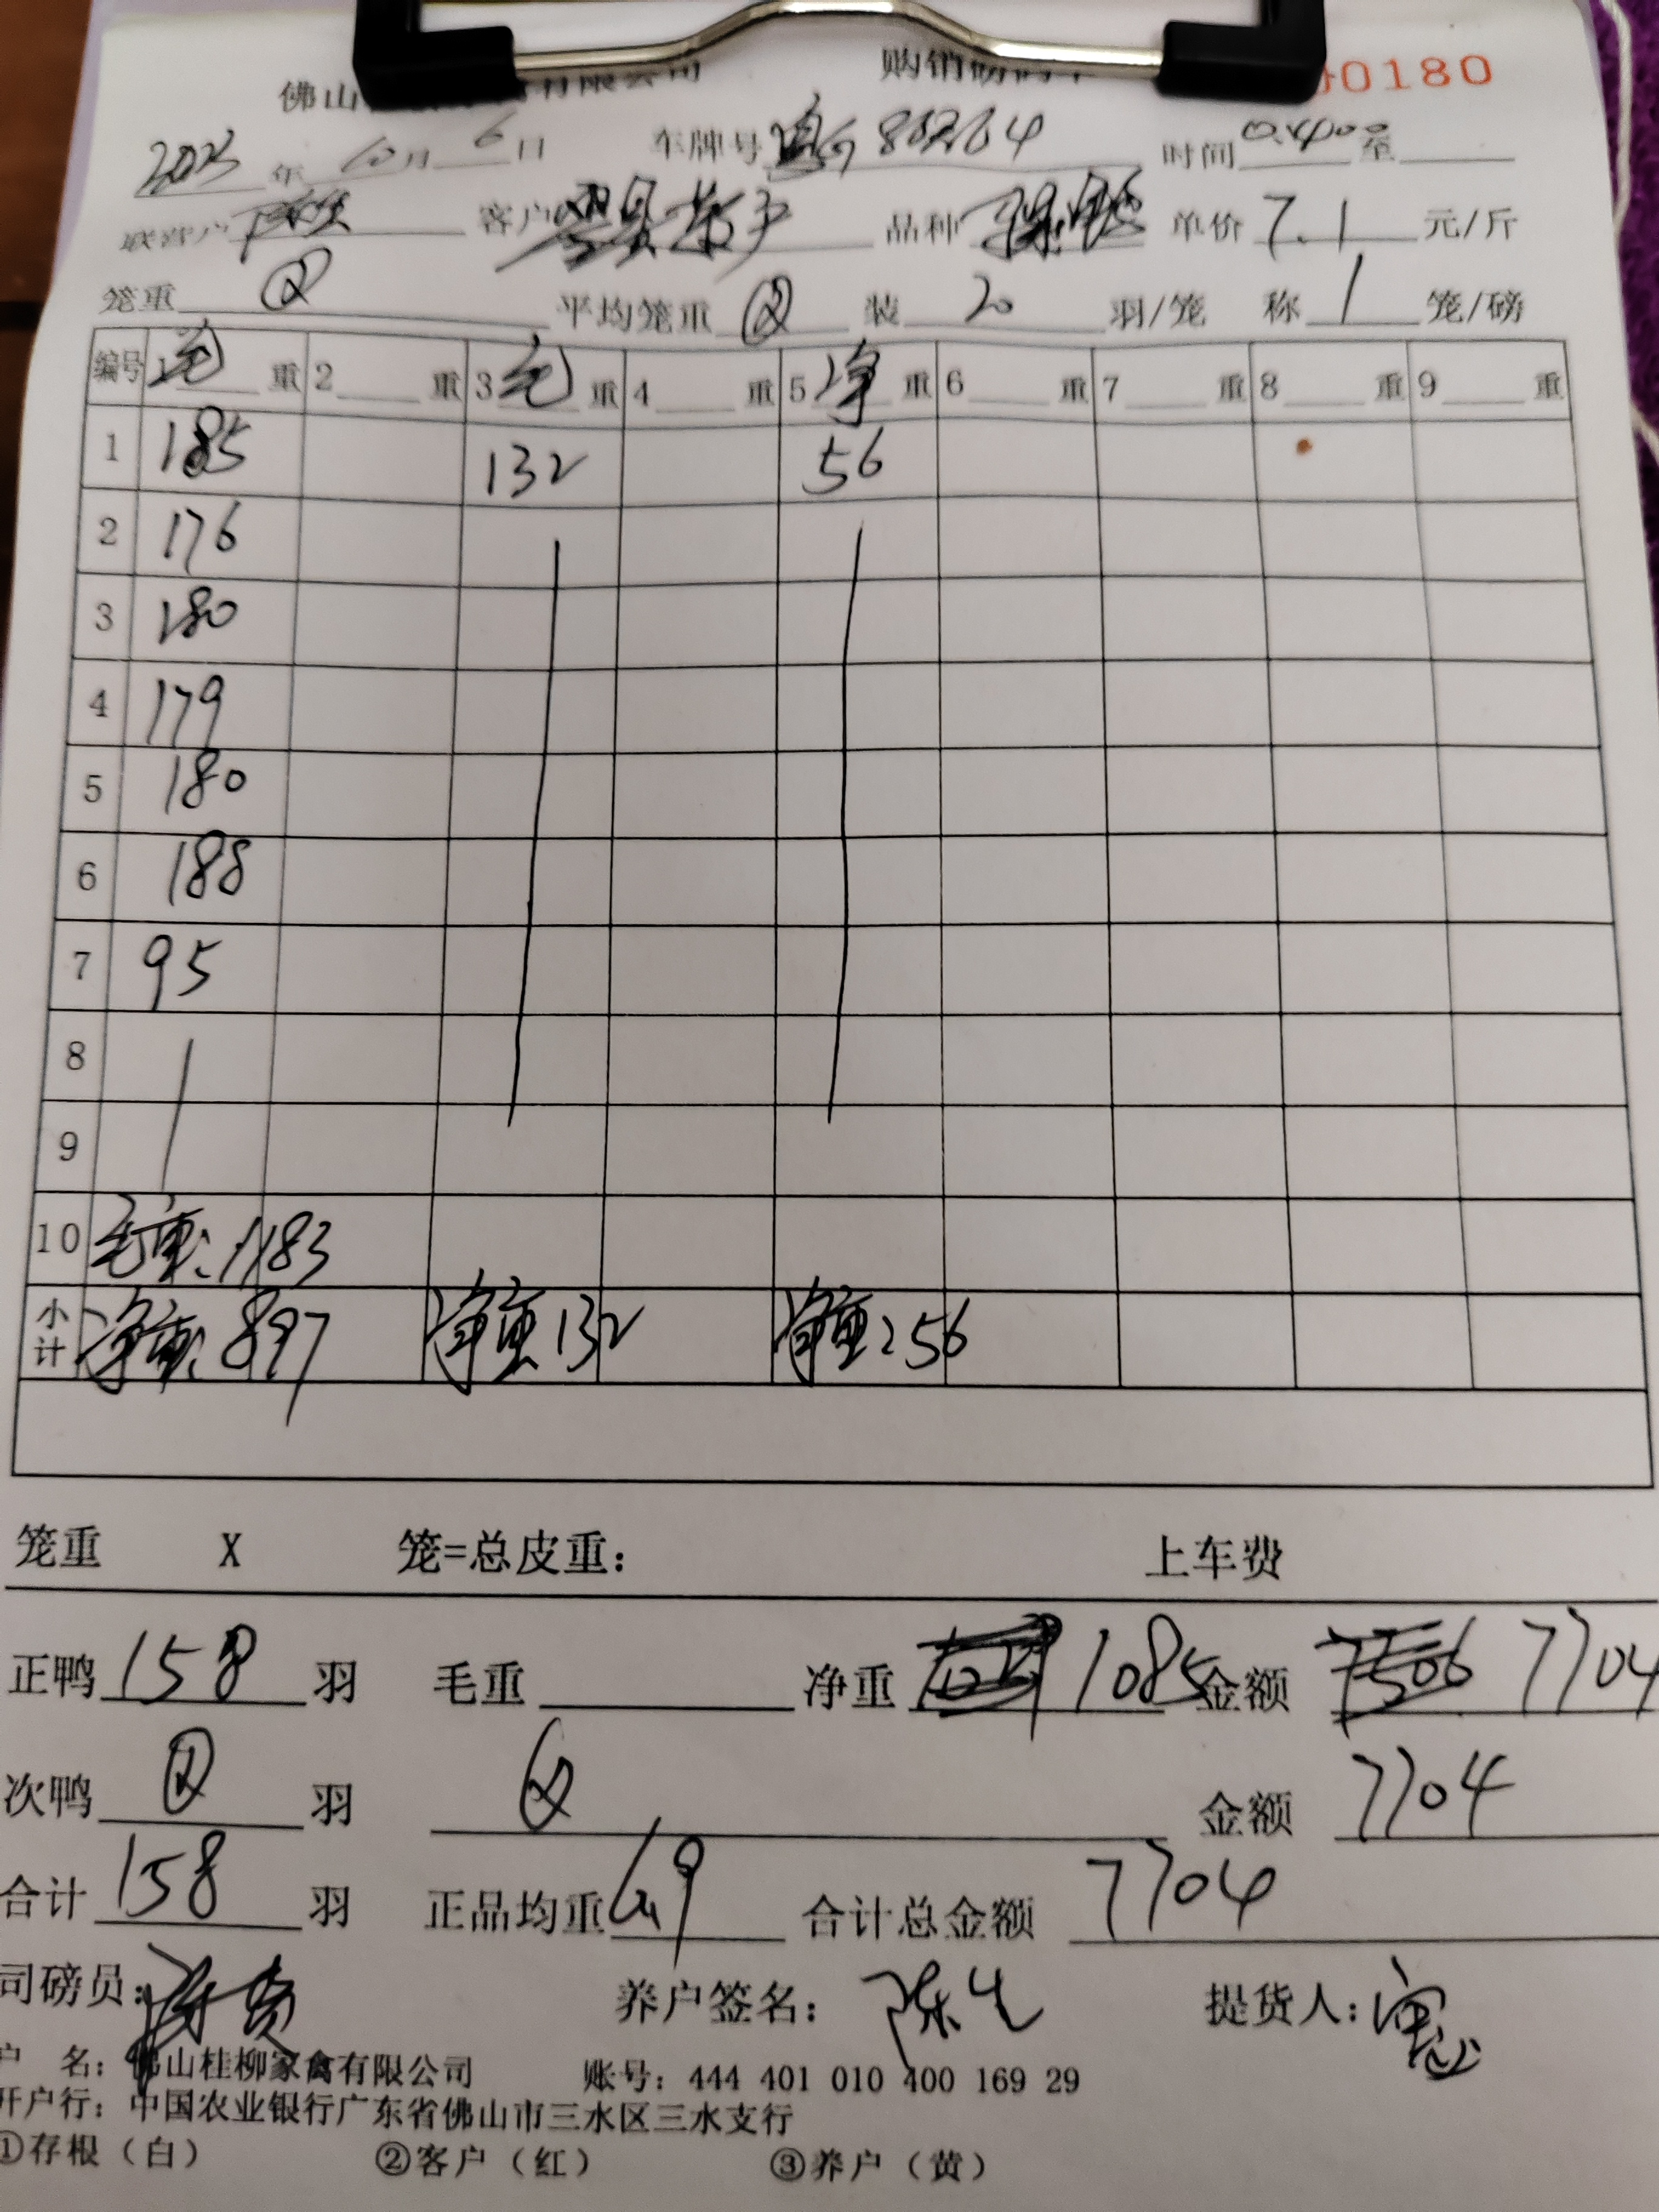 佛山 有限公司 购销磅码单 00180
2023年10月6日 车牌号 时间 至
联营户 客户 散户 品种 单价7.1元/斤
笼重 平均笼重 装20羽/笼 称1笼/磅
编号 1毛重 2 重 3毛重 4 重 5净重 6 重 7 重 8 重 9 重
1 185 132 56
2 176
3 180
4 179
5 180
6 188
7 95
8
9
10 毛重:1183
小计 净重:897 净重132 净重:56
笼重 X 笼=总皮重: 上车费
正鸭158羽 毛重 净重1085 金额7506 7704
次鸭 羽 金额7704
合计158羽 正品均重6.9 合计总金额7704
司磅员: 养户签名:陈生 提货人:
户 名:佛山桂柳家禽有限公司 账号:444 401 010 400 169 29
开户行:中国农业银行广东省佛山市三水区三水支行
①存根(白) ②客户(红) ③养户(黄)